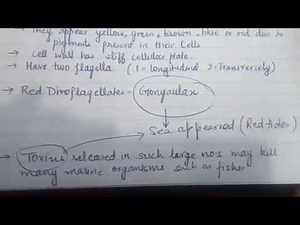 → They appear yellow, green, brown, blue or red due to
pigments present in their cells
→ cell wall has stiff cellulose plate
→ Have two flagella (1 = longitudinal 2 = Transversely)
→ Red Dinoflagellates = Gonyaulax
Sea appeared (Red tides)
→ Toxins released in such large no.s may kill
many marine organisms such as fishes